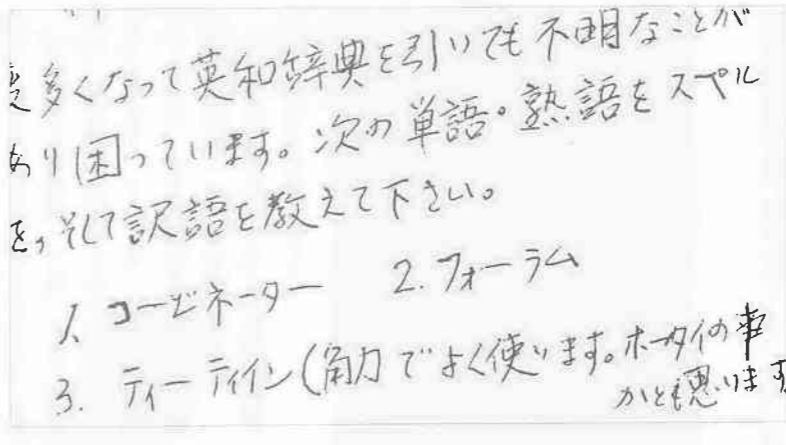 度多くなって英和辞典を引いても不明なことが
あり困っています。次の単語。熟語をスペル
を、そして訳語を教えて下さい。
1. コービネーター 2. フォーラム
3. ティーティイン(角力でよく使います。ホータイの事
かとも思います